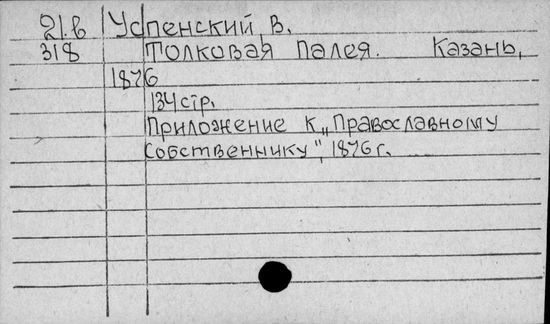 21.в Успенский, В.
318 Толковая Палея. Казань,
1876
134 стр.
Приложение к „Православному
Собственнику", 1876 г.